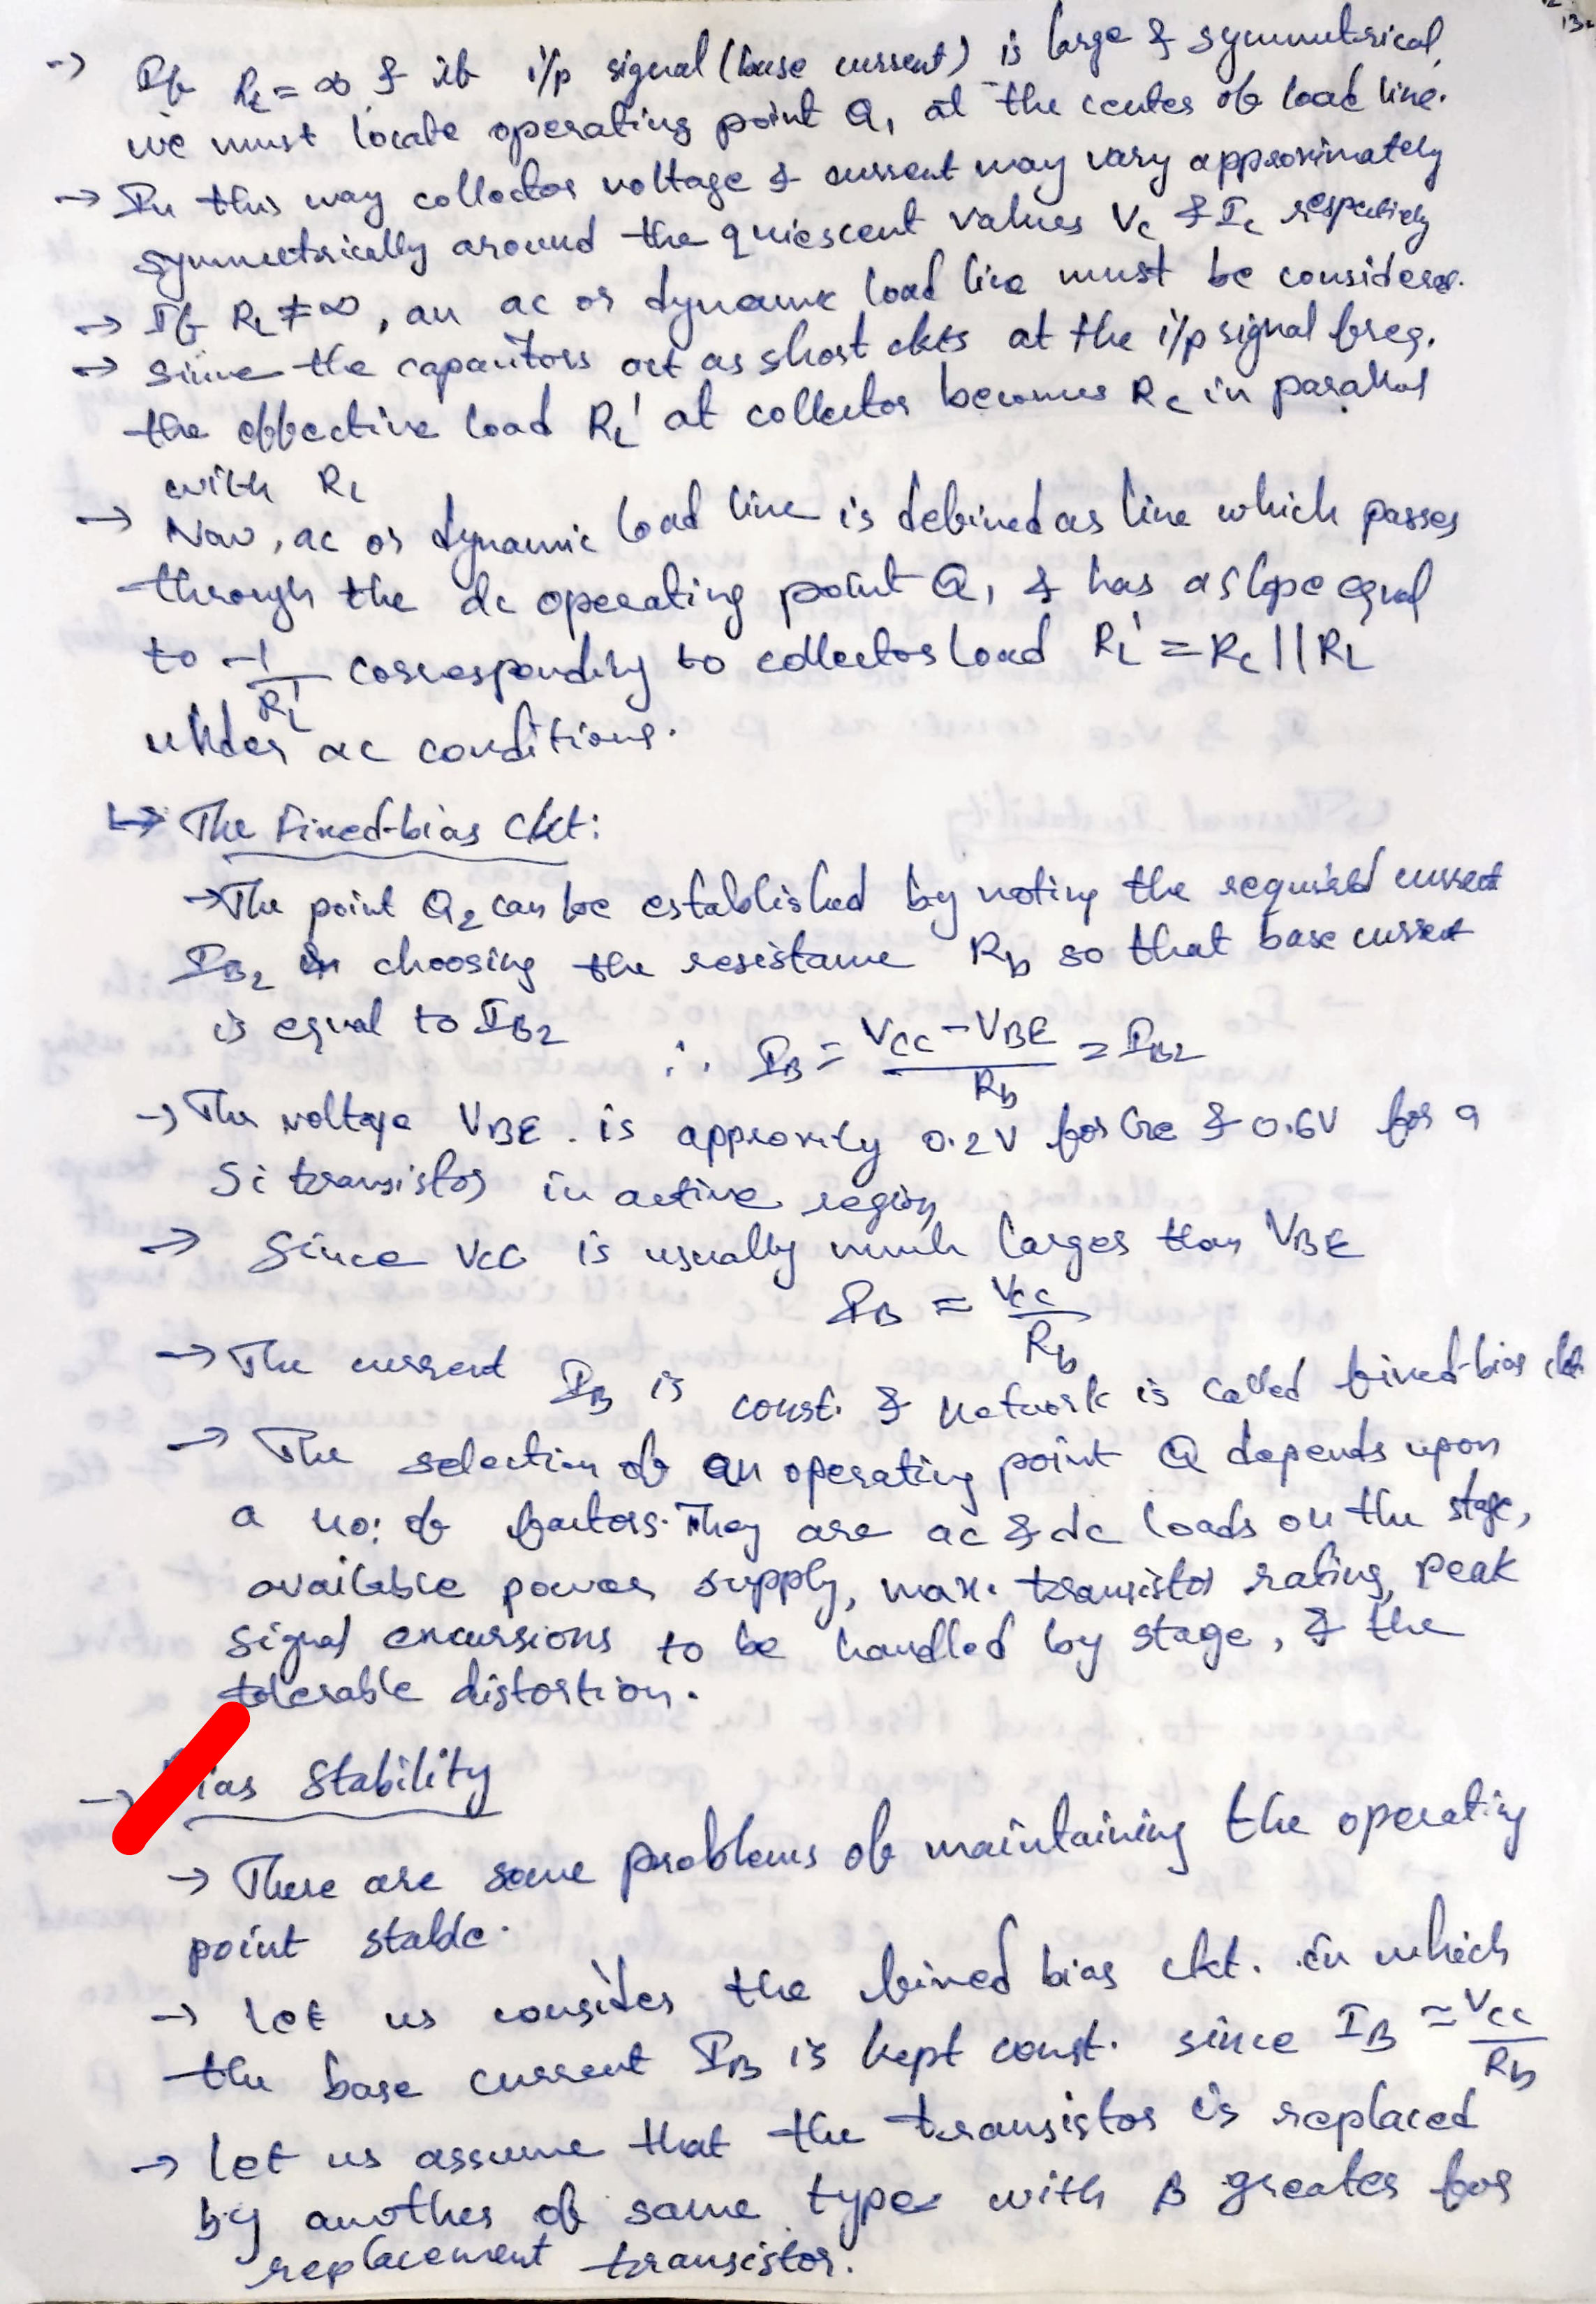 → If RL = ∞ & if i/p signal (base current) is large & symmetrical,
we must locate operating point Q1 at the center of load line.
→ In this way collector voltage & current may vary approximately
symmetrically around the quiescent values Vc & Ic respectively
→ If RL ≠ ∞, an ac or dynamic load line must be considered.
→ Since the capacitors act as short ckts at the i/p signal freq.
the effective load RL' at collector becomes Rc in parallel
with RL
→ Now, ac or dynamic load line is defined as line which passes
through the dc operating point Q1 & has a slope equal
to -1/RL' corresponding to collector load RL' = Rc || RL
under ac conditions.
↳ The Fixed-bias Ckt:
→ The point Q2 can be established by noting the required current
IB2 choosing the resistance Rb so that base current
is equal to IB2 ∴ IB = (VCC - VBE)/Rb = IB2
→ The voltage VBE is approxily 0.2V for Ge & 0.6V for a
Si transistor in active region
→ Since VCC is usually much larger than VBE
IB = Vcc/Rb
→ The current IB is const. & network is called fixed-bias ckt.
→ The selection of an operating point Q depends upon
a no: of factors. They are ac & dc loads on the stage,
available power supply, max. transistor rating, peak
signal excursions to be handled by stage, & the
tolerable distortion.
→ ias Stability
→ There are some problems of maintaining the operating
point stable.
→ Let us consider the fixed bias ckt. in which
the base current IB is kept const. since IB ≃ Vcc/Rb
→ Let us assume that the transistor is replaced
by another of same type with β greater for
replacement transistor.